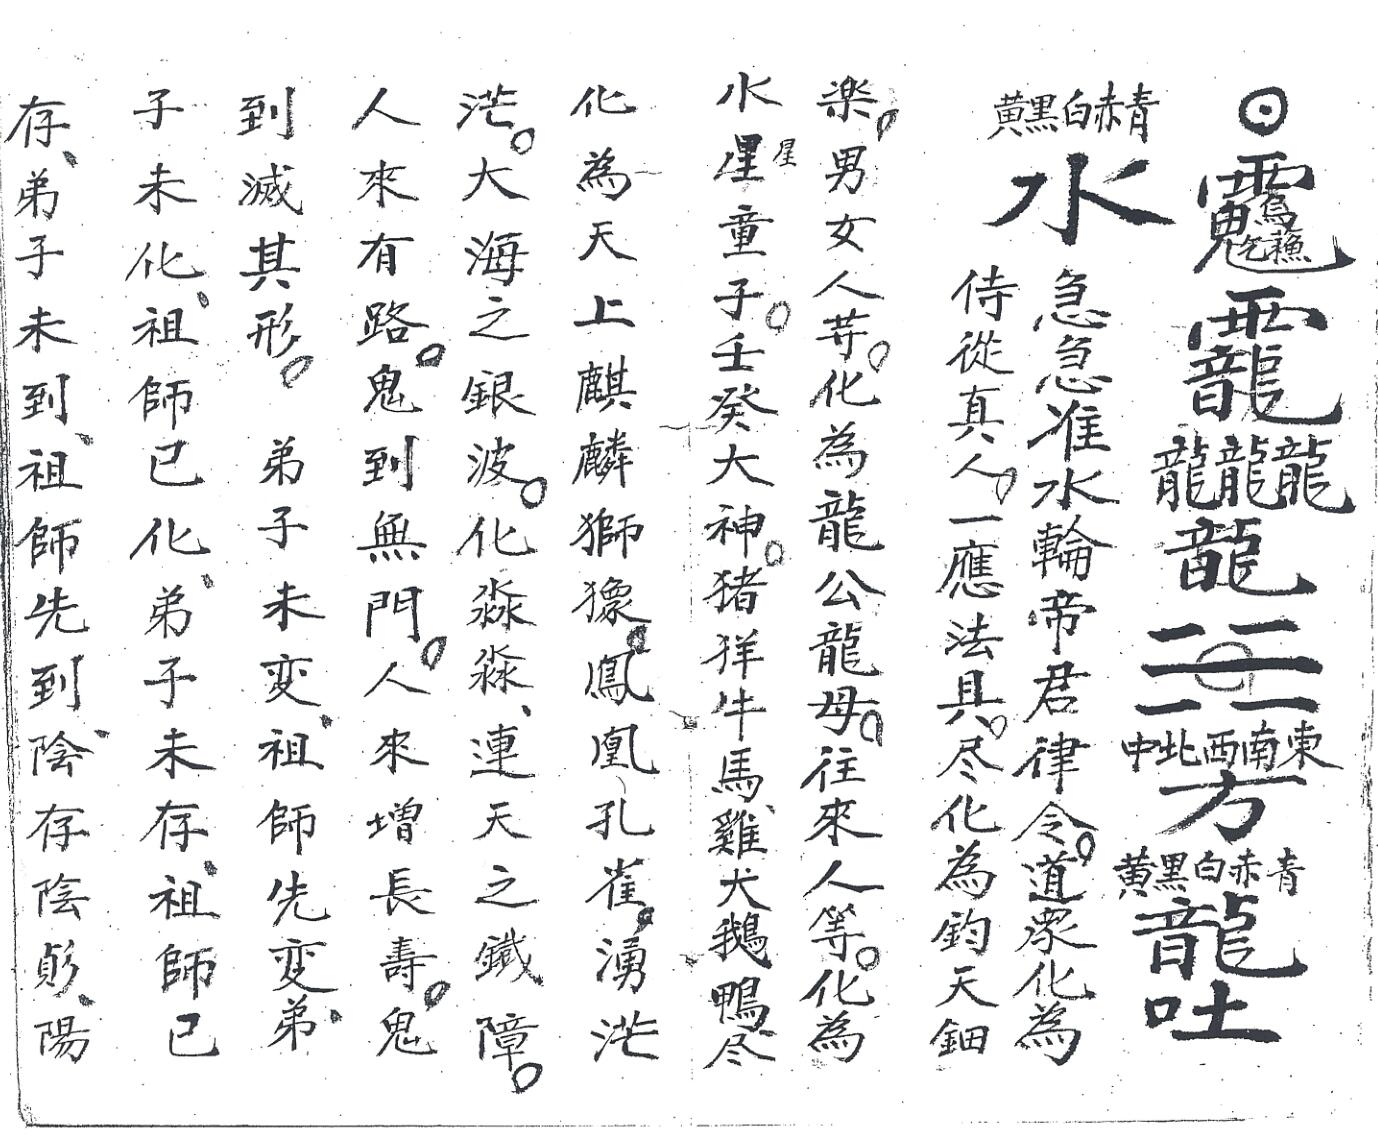 龍龍龍龍
東南西北中
方
青赤白黑黃
龍吐
青赤白黑黃
水
急急准水輪帝君律令。道眾化為
侍從真人。一應法具、尽化為鈞天鈿
楽。男女人等。化為龍公龍母。往來人等。化為
水星童子。壬癸大神。猪牛馬、雞犬鵝鴨尽
星
化為天上麒麟獅。鳳凰孔雀。湧茫
茫。大海之銀波。化淼淼、連天之鐵障。
人來有路。鬼到無門。人來增長壽。鬼
到滅其形。 弟子未变、祖師先变、弟
子未化、祖師已化、弟子未存、祖師已
存、弟子未到、祖師先到、陰存陰、陽